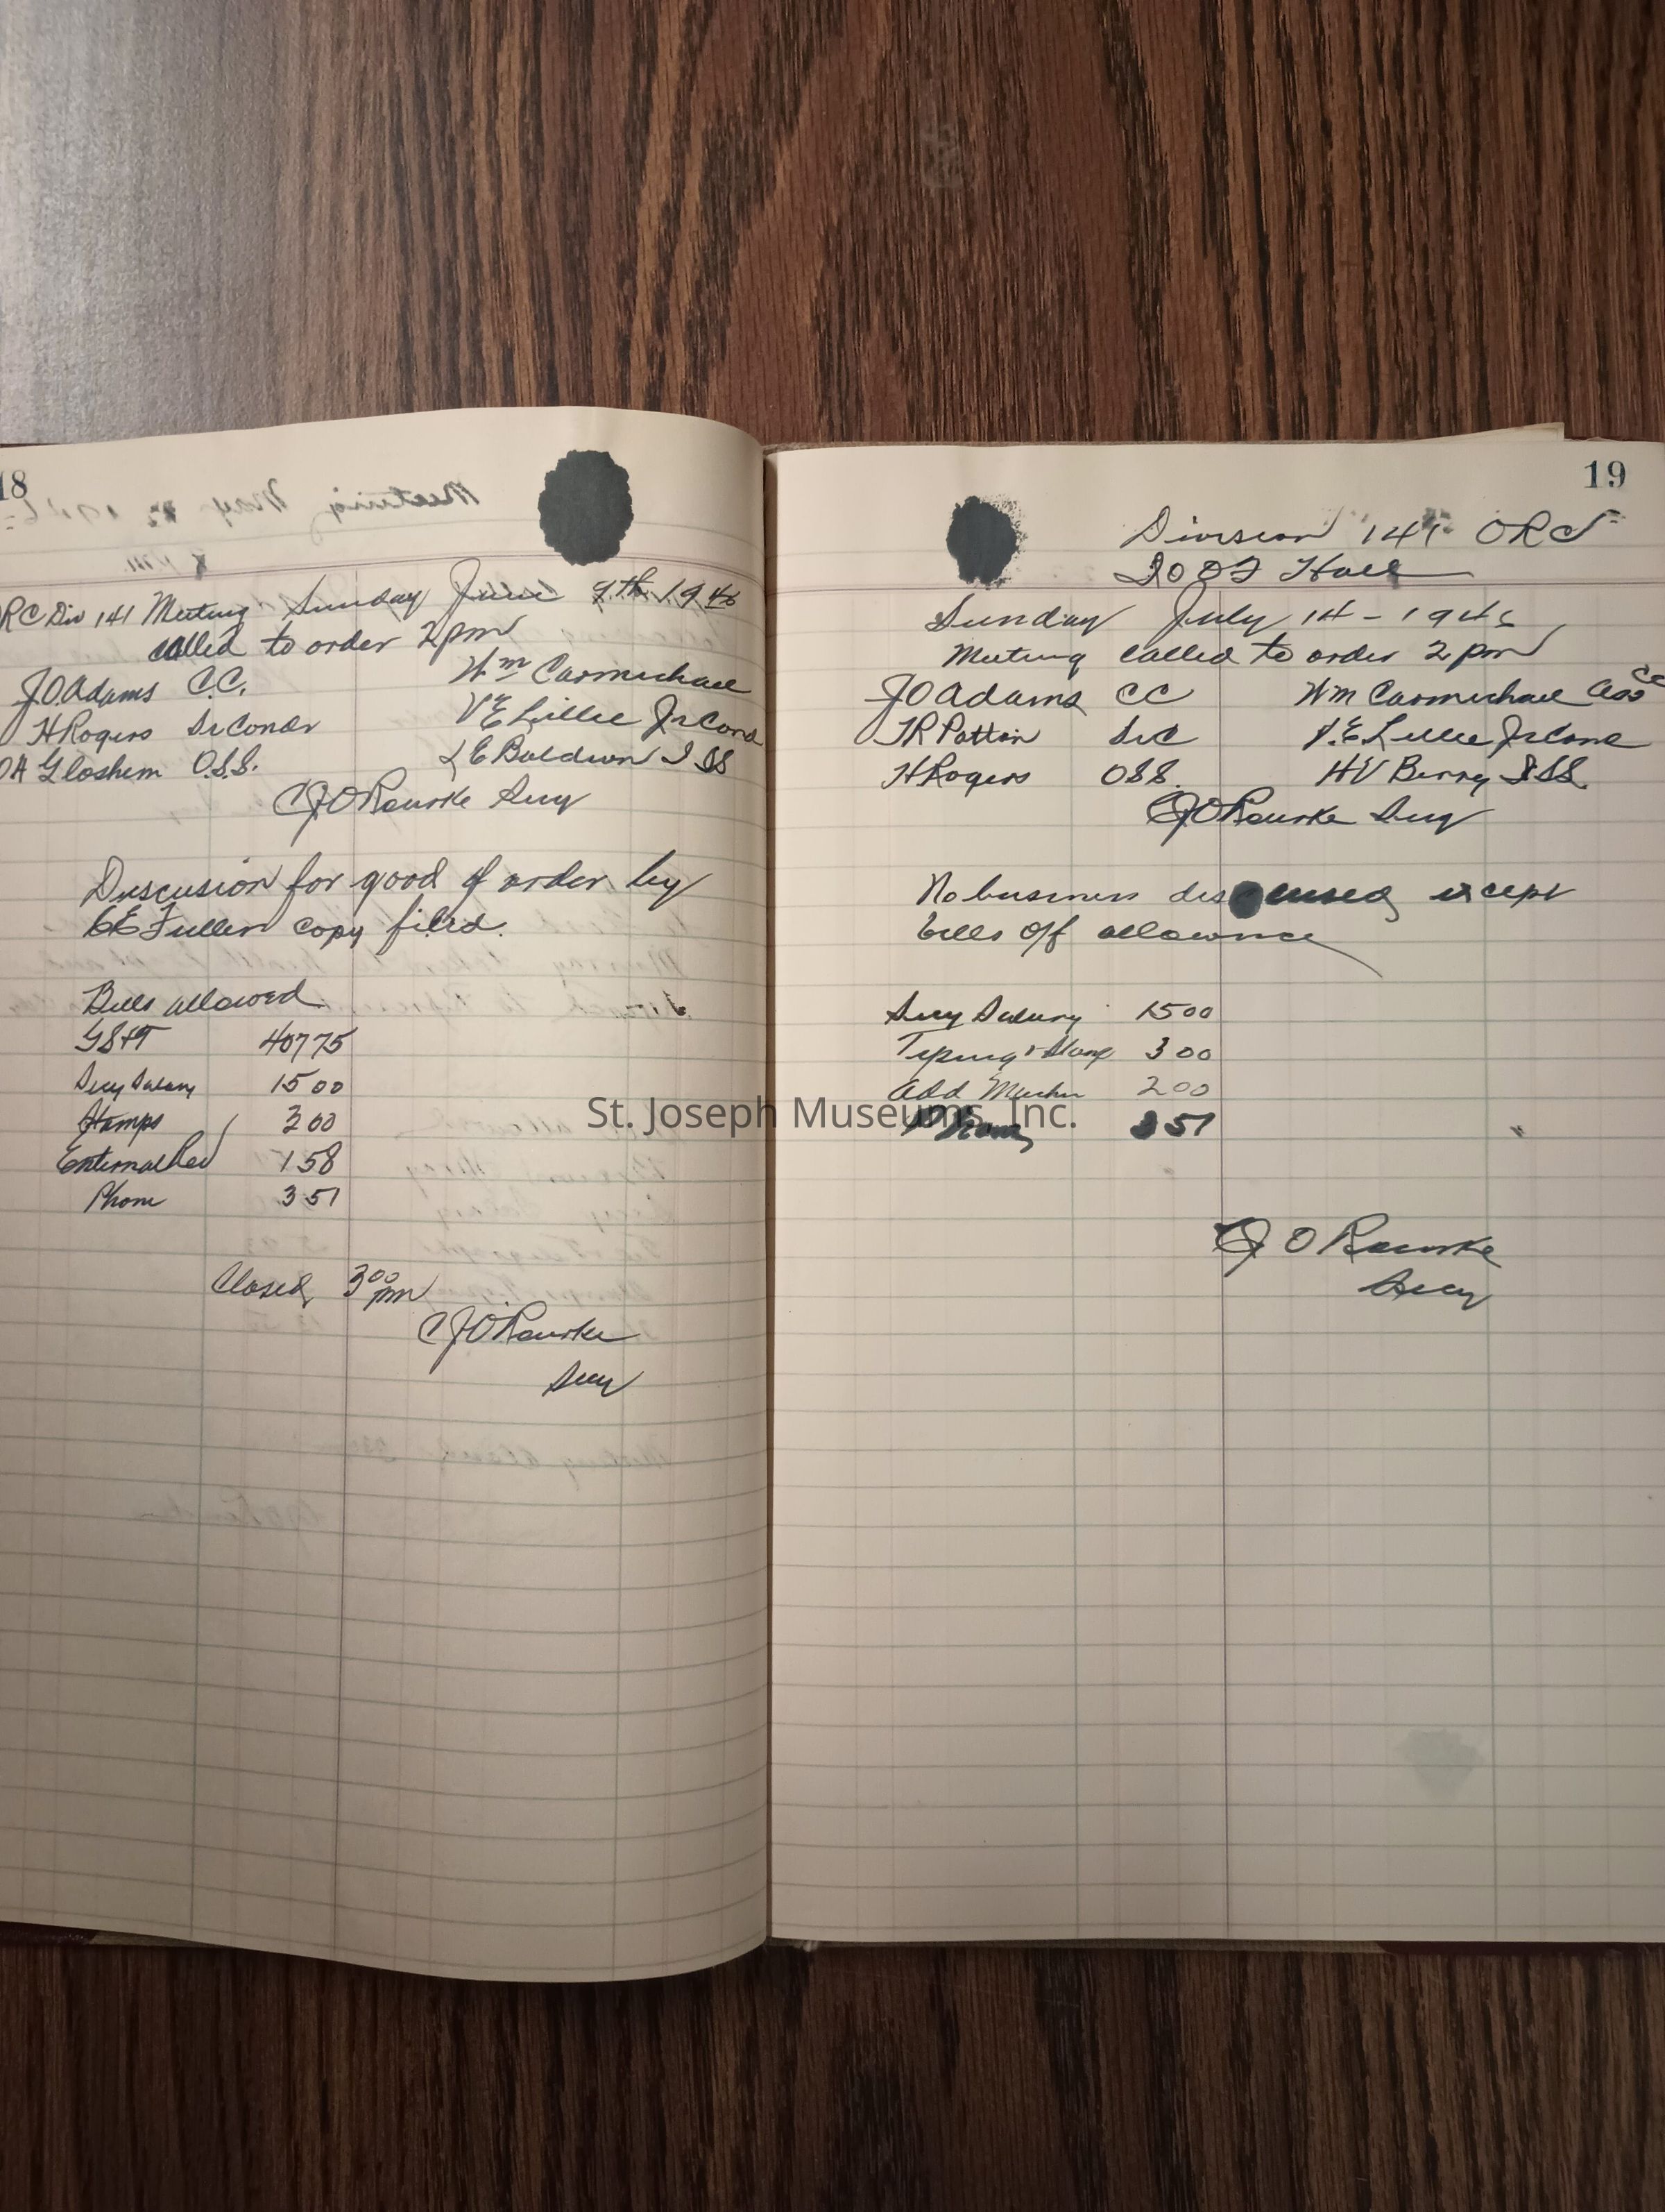 18
ORC Div 141 Meeting Sunday June 9th 1946
called to order 2 pm
J O Adams C.C. Wm Carmichael
H Rogers Sr Condr V E Lillie Jr Cond
O.S.S. L E Baldwin I SS
C J O Rourke Secy
Discusion for good of order by
C E Fuller copy filed.
Bills allowed
GS&T 407 75
Secy Salary 15 00
Stamps 3 00
Internal Rev 1 58
Phone 3 51
Closed 3 00 pm
C J O Rourke
Secy
19
Division 141 ORC
IOOF Hall
Sunday July 14 - 1946
Meeting called to order 2 pm
J O Adams CC Wm Carmichael Ass CC
Patton SrC V. E. Lillie Jr Cond
H Rogers OSS. H V Berry ISS.
C J O Rourke Secy
No business discussed except
bills off allowance
Secy Salary 15 00
Typing & 3 00
Add Machin 2 00
Phone 3 51
C J O Rourke
Secy
St. Joseph Museums, Inc.